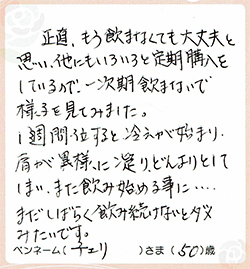 正直、もう飲まなくても大丈夫と
思い、他にもいろいろと定期購入を
しているので、一次期飲まないで
様子を見てみました。
1週間位すると冷えが始まり、
肩が異様に凝り、どんよりとして
しまい、また飲み始める事に‥‥
まだしばらく飲み続けないとダメ
みたいです。
ペンネーム(チェリ)さま(50)歳